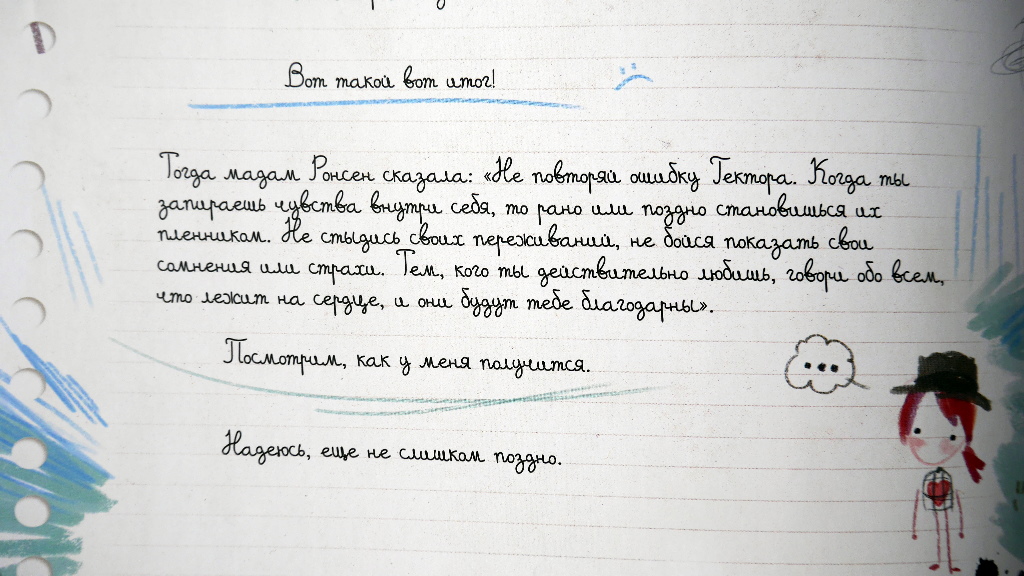 Вот такой вот итог!
Тогда мадам Ронсен сказала: «Не повторяй ошибку Гектора. Когда ты
запираешь чувства внутри себя, то рано или поздно становишься их
пленником. Не стыдись своих переживаний, не бойся показать свои
сомнения или страхи. Тем, кого ты действительно любишь, говори обо всем,
что лежит на сердце, и они будут тебе благодарны».
Посмотрим, как у меня получится.
...
Надеюсь, еще не слишком поздно.